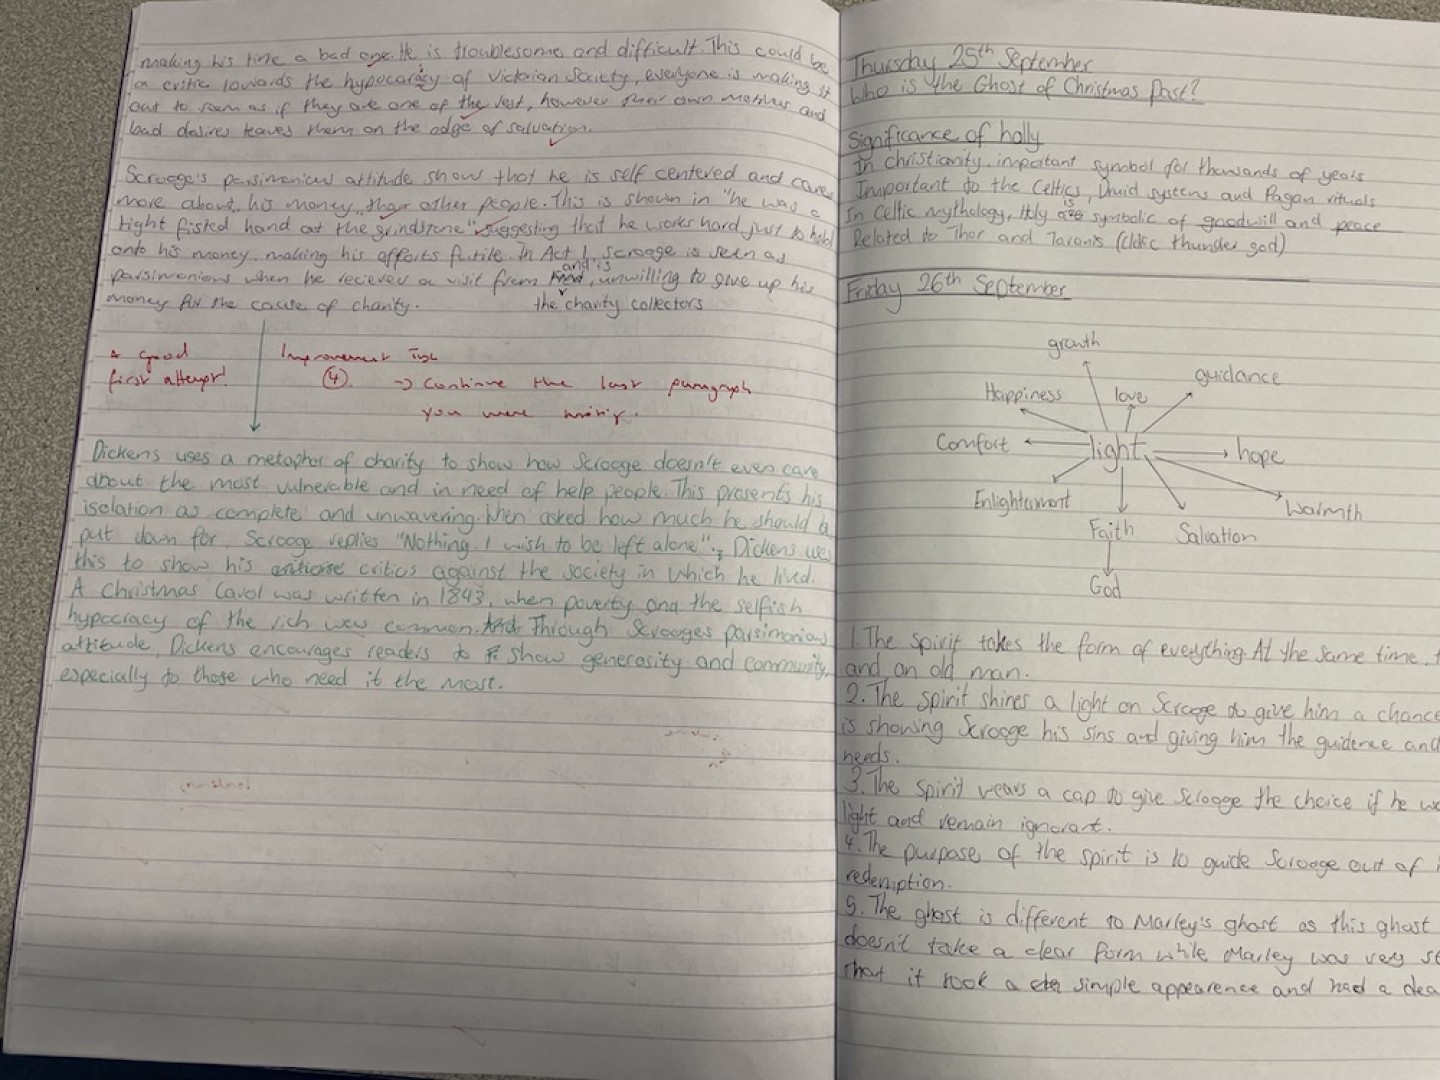 making his time a bad one. He is troublesome and difficult. This could be
a critic towards the hypocaracy of Victorian Society, everyone is making it
out to seem as if they are one of the best, however their own motives and
bad desires leaves them on the edge of salvation.
Scrooge's parsimonious attitude show that he is self centered and cares
more about his money than other people. This is shown in "he was a
tight fisted hand at the grindstone" suggesting that he works hard just to hold
onto his money, making his efforts futile. In Act 1, Scrooge is seen as
parsimonious when he recieves a visit from and is unwilling to give up his
money for the cause of charity. the charity collectors
A good
first attempt!
Improvement Task
④ → Continue the last paragraph
you were writing.
Dickens uses a metaphor of charity to show how Scrooge doesn't even care
about the most vulnerable and in need of help people. This presents his
isolation as complete and unwavering. When asked how much he should be
put down for, Scrooge replies "Nothing. I wish to be left alone". Dickens uses
this to show his critics against the society in which he lived.
A Christmas Carol was written in 1843, when poverty and the selfish
hypocracy of the rich was common. Through Scrooges parsimonious
attitude, Dickens encourages readers to show generosity and community,
especially to those who need it the most.
Thursday 25th September
Who is the Ghost of Christmas Past?
Significance of holly
In christianity, important symbol for thousands of years
Important to the Celtics, Druid systems and Pagan rituals
In Celtic mythology, Holy is symbolic of goodwill and peace
Related to Thor and Taranis (Celtic thunder god)
Friday 26th September
growth
guidance
Happiness
love
Comfort
light
hope
Enlightenment
Warmth
Faith
Salvation
God
1. The spirit takes the form of everything At the same time,
and an old man.
2. The spirit shines a light on Scrooge to give him a chance
is showing Scrooge his sins and giving him the guidence and
needs.
3. The spirit wears a cap to give Scrooge the choice if he
light and remain ignorant.
4. The purpose of the spirit is to guide Scrooge out of
redemption.
5. The ghost is different to Marley's ghost as this ghost
doesn't take a clear form while Marley was very
that it took a simple appearence and had a